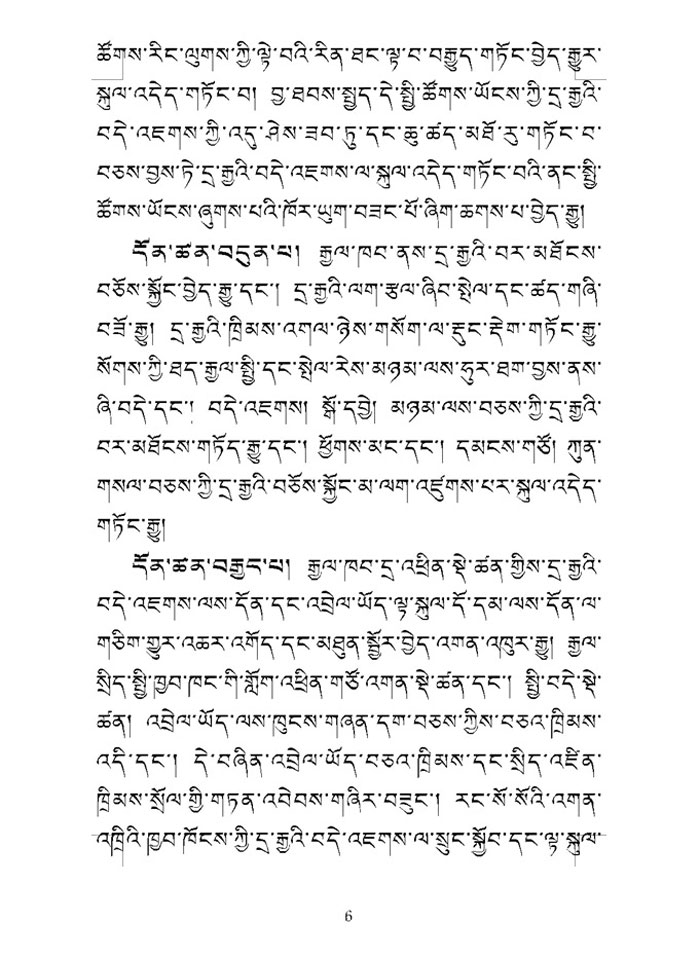 ཚོགས་རིང་ལུགས་ཀྱི་ལྟེ་བའི་རིན་ཐང་ལྟ་བ་བརྒྱུད་གཏོང་བྱེད་རྒྱུར་
སྐུལ་འདེད་གཏོང་བ། བྱ་ཐབས་སྤྱད་དེ་སྤྱི་ཚོགས་ཡོངས་ཀྱི་དྲ་རྒྱའི་
བདེ་འཇགས་ཀྱི་འདུ་ཤེས་ཟབ་ཏུ་དང་ཆུ་ཚད་མཐོ་རུ་གཏོང་བ་
བཅས་བྱས་ཏེ་དྲ་རྒྱའི་བདེ་འཇགས་ལ་སྐུལ་འདེད་གཏོང་བའི་ནང་སྤྱི་
ཚོགས་ཡོངས་ཞུགས་པའི་ཁོར་ཡུག་བཟང་པོ་ཞིག་ཆགས་པ་བྱེད་རྒྱུ།
དོན་ཚན་བདུན་པ། རྒྱལ་ཁབ་ནས་དྲ་རྒྱའི་བར་མཐོངས་
བཅོས་སྐྱོང་བྱེད་རྒྱུ་དང་། དྲ་རྒྱའི་ལག་རྩལ་ཞིབ་སྤེལ་དང་ཚད་གཞི་
བཟོ་རྒྱུ། དྲ་རྒྱའི་ཁྲིམས་འགལ་ཉེས་གསོག་ལ་རྡུང་རྡེག་གཏོང་རྒྱུ་
སོགས་ཀྱི་ཐད་རྒྱལ་སྤྱི་དང་སྤེལ་རེས་མཉམ་ལས་ཧུར་ཐག་བྱས་ནས་
ཞི་བདེ་དང་། བདེ་འཇགས། སྒོ་དབྱེ། མཉམ་ལས་བཅས་ཀྱི་དྲ་རྒྱའི་
བར་མཐོངས་གཏོད་རྒྱུ་དང་། ཕྱོགས་མང་དང་། དམངས་གཙོ། ཀུན་
གསལ་བཅས་ཀྱི་དྲ་རྒྱའི་བཅོས་སྐྱོང་མ་ལག་འཛུགས་པར་སྐུལ་འདེད་
གཏོང་རྒྱུ།
དོན་ཚན་བརྒྱད་པ། རྒྱལ་ཁབ་དྲ་འཕྲིན་སྡེ་ཚན་གྱིས་དྲ་རྒྱའི་
བདེ་འཇགས་ལས་དོན་དང་འབྲེལ་ཡོད་ལྟ་སྐུལ་དོ་དམ་ལས་དོན་ལ་
གཅིག་གྱུར་འཆར་འགོད་དང་མཐུན་སྦྱོར་བྱེད་འགན་འཁུར་རྒྱུ། རྒྱལ་
སྲིད་སྤྱི་ཁྱབ་ཁང་གི་གློག་འཕྲིན་གཙོ་འགན་སྡེ་ཚན་དང་། སྤྱི་བདེ་སྡེ་
ཚན། འབྲེལ་ཡོད་ལས་ཁུངས་གཞན་དག་བཅས་ཀྱིས་བཅའ་ཁྲིམས་
འདི་དང་། དེ་བཞིན་འབྲེལ་ཡོད་བཅའ་ཁྲིམས་དང་སྲིད་འཛིན་
ཁྲིམས་སྲོལ་གྱི་གཏན་འབེབས་གཞིར་བཟུང་། རང་སོ་སོའི་འགན་
འཁྲིའི་ཁྱབ་ཁོངས་ཀྱི་དྲ་རྒྱའི་བདེ་འཇགས་ལ་སྲུང་སྐྱོབ་དང་ལྟ་སྐུལ་
6